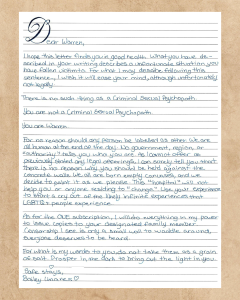 Dear Warren,
I hope this letter finds you in good health. What you have de-
scribed in your writing describes a unfortunate situation you
have fallen victim to. For what I may describe following this
sentence, I wish it will ease your mind, although unfortunately
not legally.
There is no such thing as a Criminal Sexual Psychopath.
You are not a Criminal Sexual Psychopath.
You are Warren.
For no reason should any person be labelled as other. We are
all human at the end of the day. No government, region, or
testimony tells you who you are. As I cannot offer
you legal offerings, I can simply tell you that
there is no reason why you should be held against the
concrete walls. We are born empty canvases, and we
decide to paint it as we please. This "hospital" will not
help you or anyone needing to "change". Use your experience
to start a cry out of the likely infinite experiences that
LGBTQ+ people experience.
As for the ONE subscription, I will do everything in my power
to issue copies to your designated family member.
Censorship is only a small wall to waddle around,
everyone deserves to be heard.
For what is my words to you, do not take them as a grain
of salt. Prosper in the dark to bring out the light in you.
Bailey